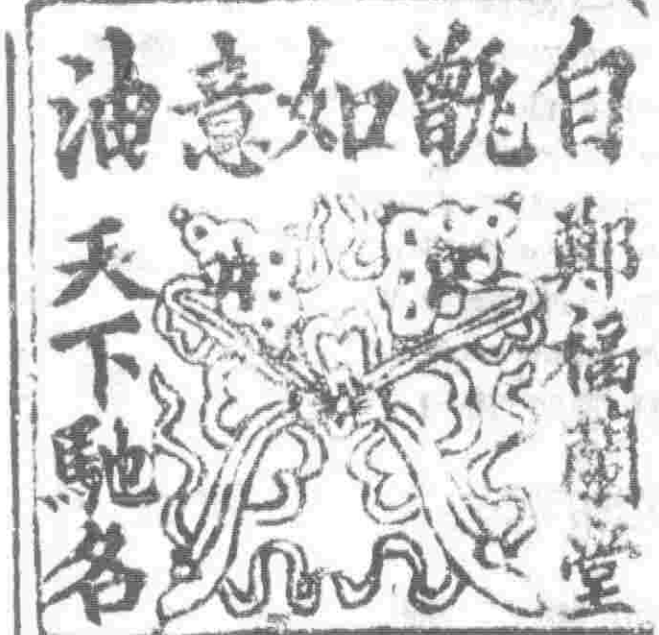 自甑如意油
鄭福蘭堂
天下馳名